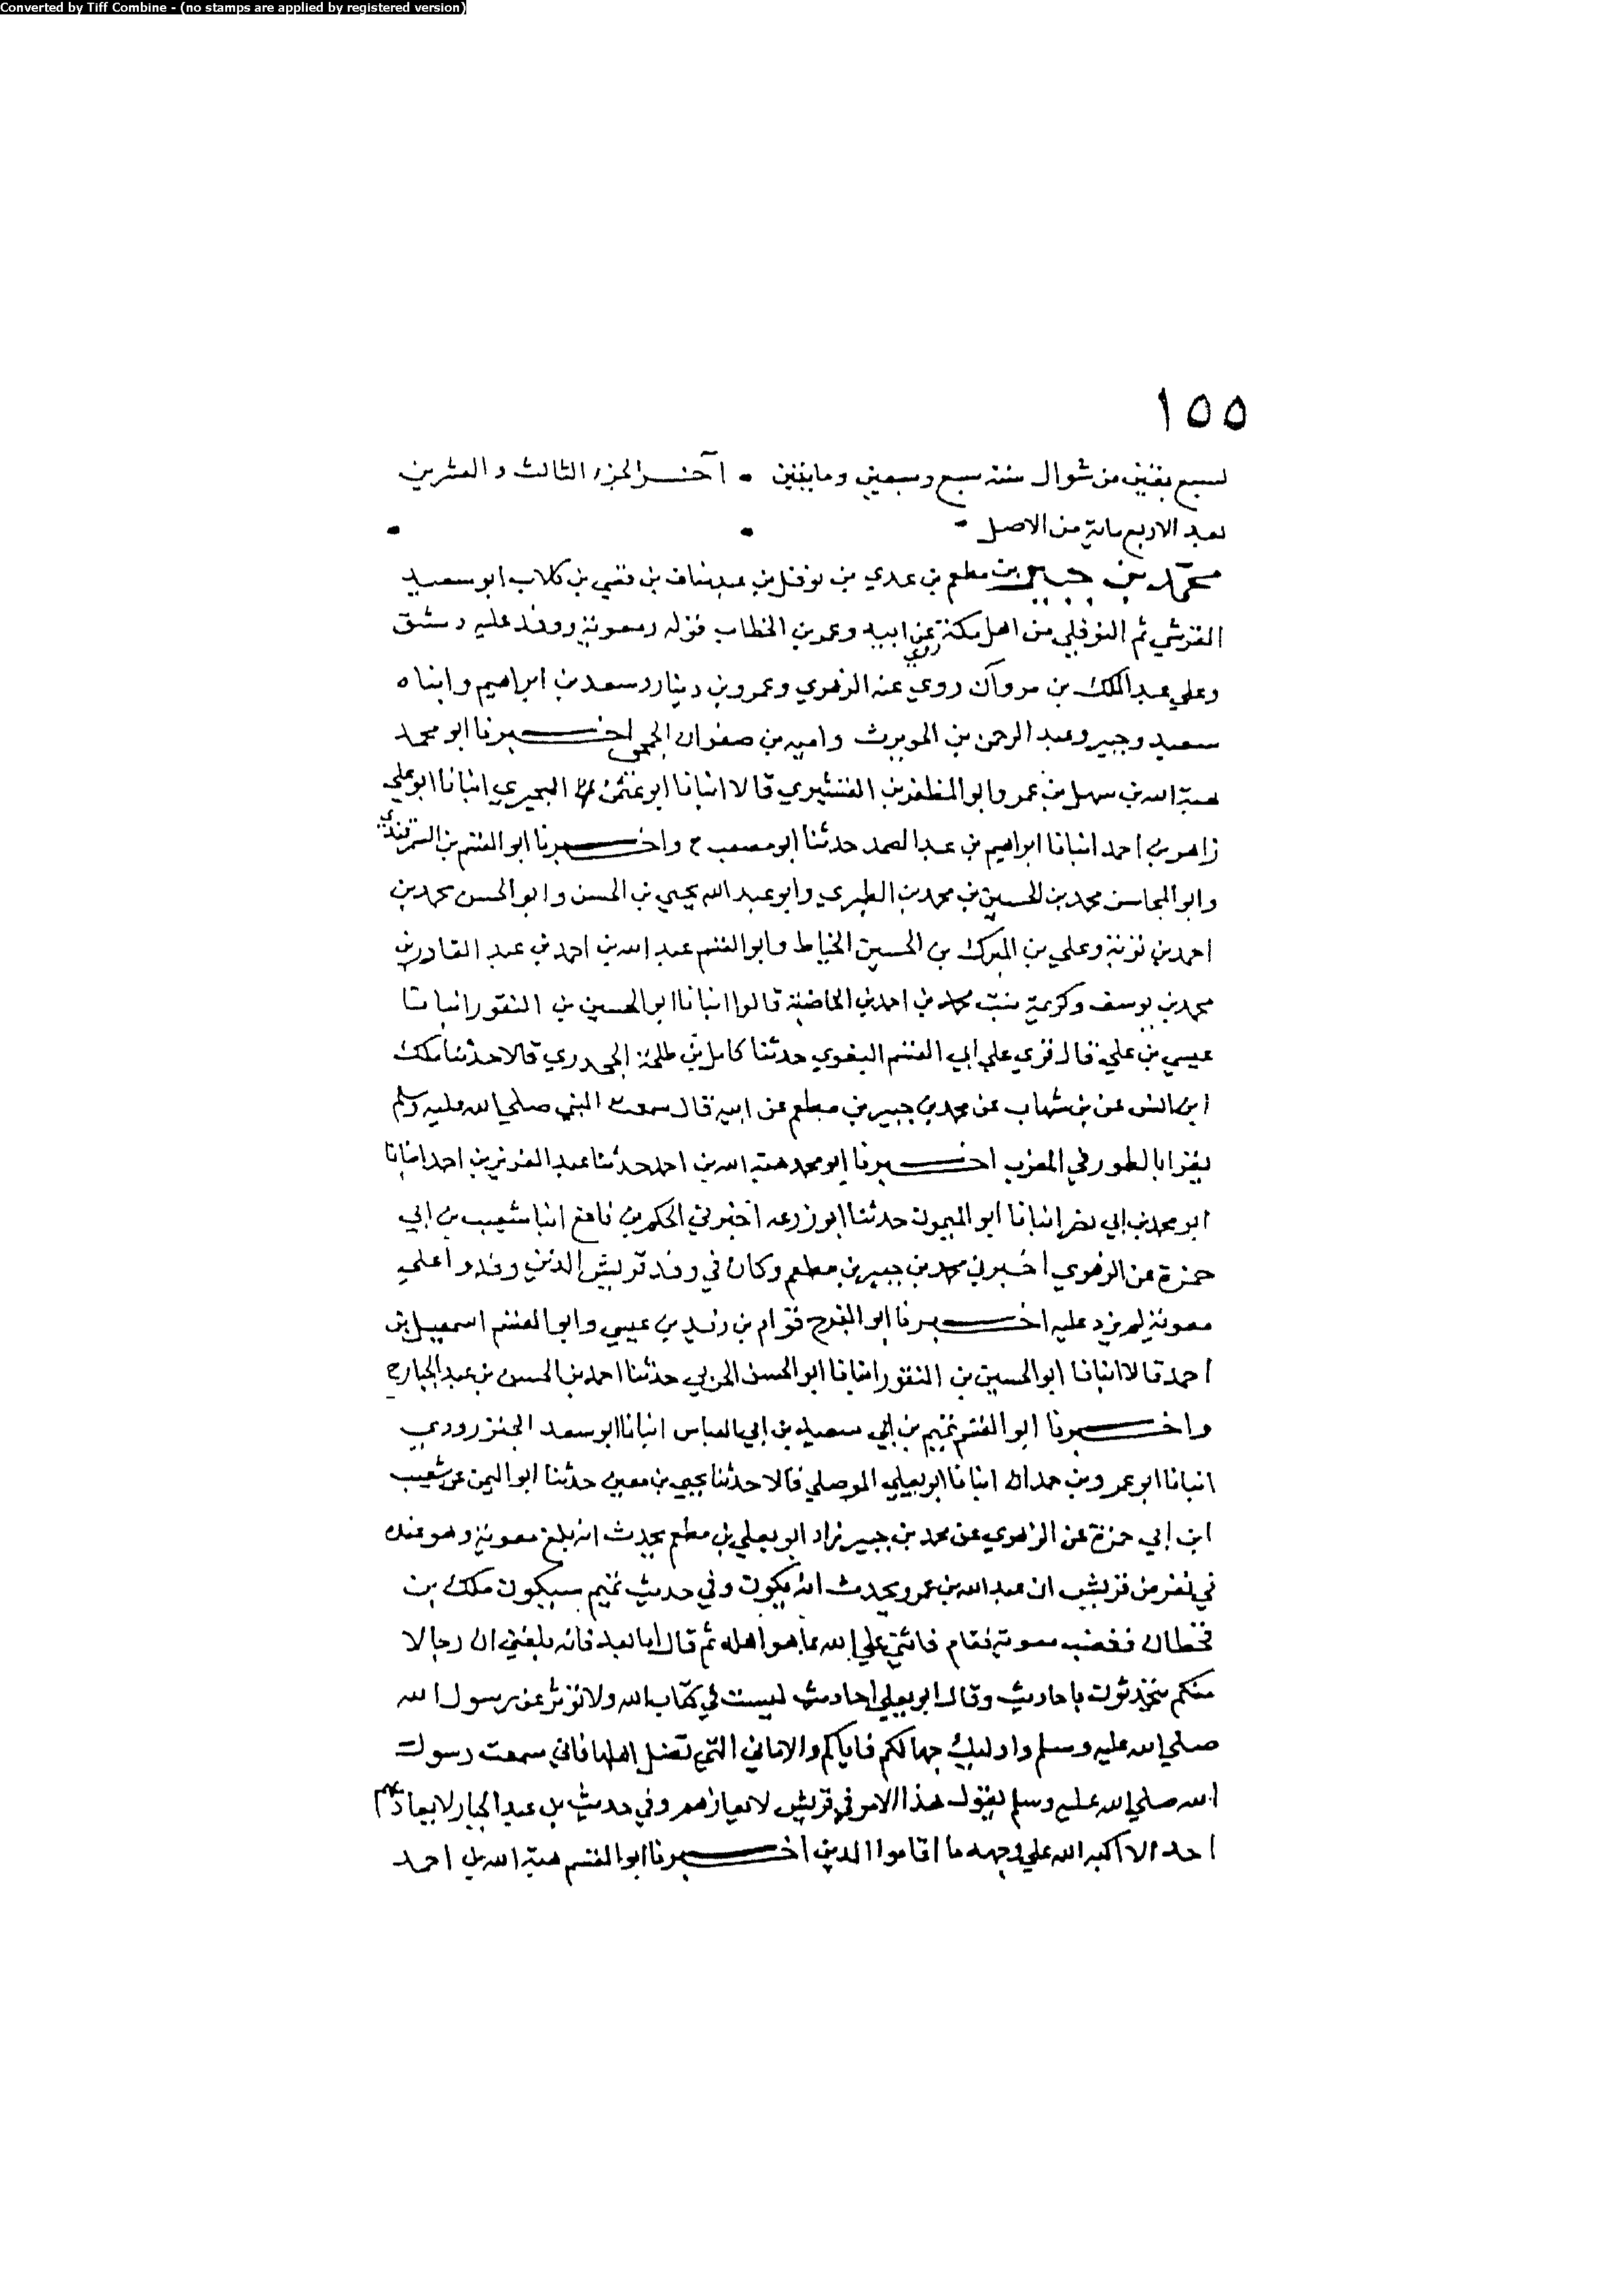 Converted by Tiff Combine - (no stamps are applied by registered version)
١٥٥
لسبع بقين من شوال سنة سبع وسبعين ومايتين • آخر الجزء الثالث والعشرين
بعد الاربع ماية من الاصل •
محمد بن جبير بن مطعم بن عدي بن نوفل بن عبد مناف بن قصي بن كلاب ابو سعيد
القرشي ثم النوفلي من اهل مكة روي عن ابيه وعمر بن الخطاب قوله ومعوية ووفد عليه دمشق
وعلي عبد الملك بن مروان روي عنه الزهري وعمرو بن دينار وسعد بن ابراهيم وابناه
سعيد وجبير وعبد الرحمن بن الحويرث وامية بن صفوان الجمحي اخبرنا ابو محمد
هبة الله بن سهل بن عمر وابو المظفر بن القشيري قالا انبانا ابو عثمن البحيري انبانا ابو علي
زاهر بن احمد انبانا ابراهيم بن عبد الصمد حدثنا ابو مصعب ح واخبرنا ابو القسم بن السمرقندي
وابو المحاسن محمد بن الحسين بن محمد بن الطبري وابو عبد الله يحيي بن الحسن وابو الحسن محمد بن
احمد بن توبة وعلي بن المبرك بن الحسين الخياط وابو القسم عبد الله بن احمد بن عبد القادر بن
محمد بن يوسف وكريمة بنت محمد بن احمد بن الخاضبة قالوا انبانا ابو الحسين بن النقور انبانا
عيسي بن علي قال قري علي ابي القسم البغوي حدثنا كامل بن طلحة الجحدري قالا حدثنا ملك
ابن انس عن بن شهاب عن محمد بن جبير بن مطعم عن ابيه قال سمعت النبي صلي الله عليه وسلم
يقرا بالطور في المغرب اخبرنا ابو محمد هبة الله بن احمد حدثنا عبد العزيز بن احمد انبانا
ابو محمد بن ابي نصر انبانا ابو الميمون حدثنا ابو زرعه اخبرني الحكم بن نافع انبا شعيب بن ابي
حمزة عن الزهري اخبرني محمد بن جبير بن مطعم وكان في وفد قريش الذين وفدوا علي
معوية لم يزد عليه اخبرنا ابو الفرح قوام بن زيد بن عيسي وابو القسم اسمعيل بن
احمد قالا انبانا ابو الحسين بن النقور انبانا ابو الحسن الحربي حدثنا احمد بن الحسن بن عبد الجبار ح
واخبرنا ابو القسم تميم بن ابي سعيد بن ابي العباس انبانا ابو سعد الجنزرودي
انبانا ابو عمرو بن حمدان انبانا ابو يعلي الموصلي قالا حدثنا يحيي بن معين حدثنا ابو اليمن عن شعيب
ابن ابي حمزة عن الزهري عن محمد بن جبير زاد ابو يعلي بن مطعم يحدث انه بلغ معوية وهو عنده
في نفر من قريش ان عبد الله بن عمرو يحدث انه يكون وفي حديث تميم سيكون ملك بن
قحطان فغضب معوية فقام فاثني علي الله بما هو اهله ثم قال اما بعد فانه بلغني ان رجالا
منكم يتحدثون باحاديث وقال ابو يعلي احاديث ليست في كتاب الله ولا توثر عن رسول الله
صلي الله عليه وسلم واوليك جهالكم فاياكم والاماني التي تضل اهلها فاني سمعت رسول
الله صلي الله عليه وسلم يقول هذا الامر في قريش لا يعازهم وفي حديث بن عبد الجبار لا يعاديهم
احد الا اكبه الله علي وجهه ما اقاموا الدين اخبرنا ابو القسم هبة الله بن احمد